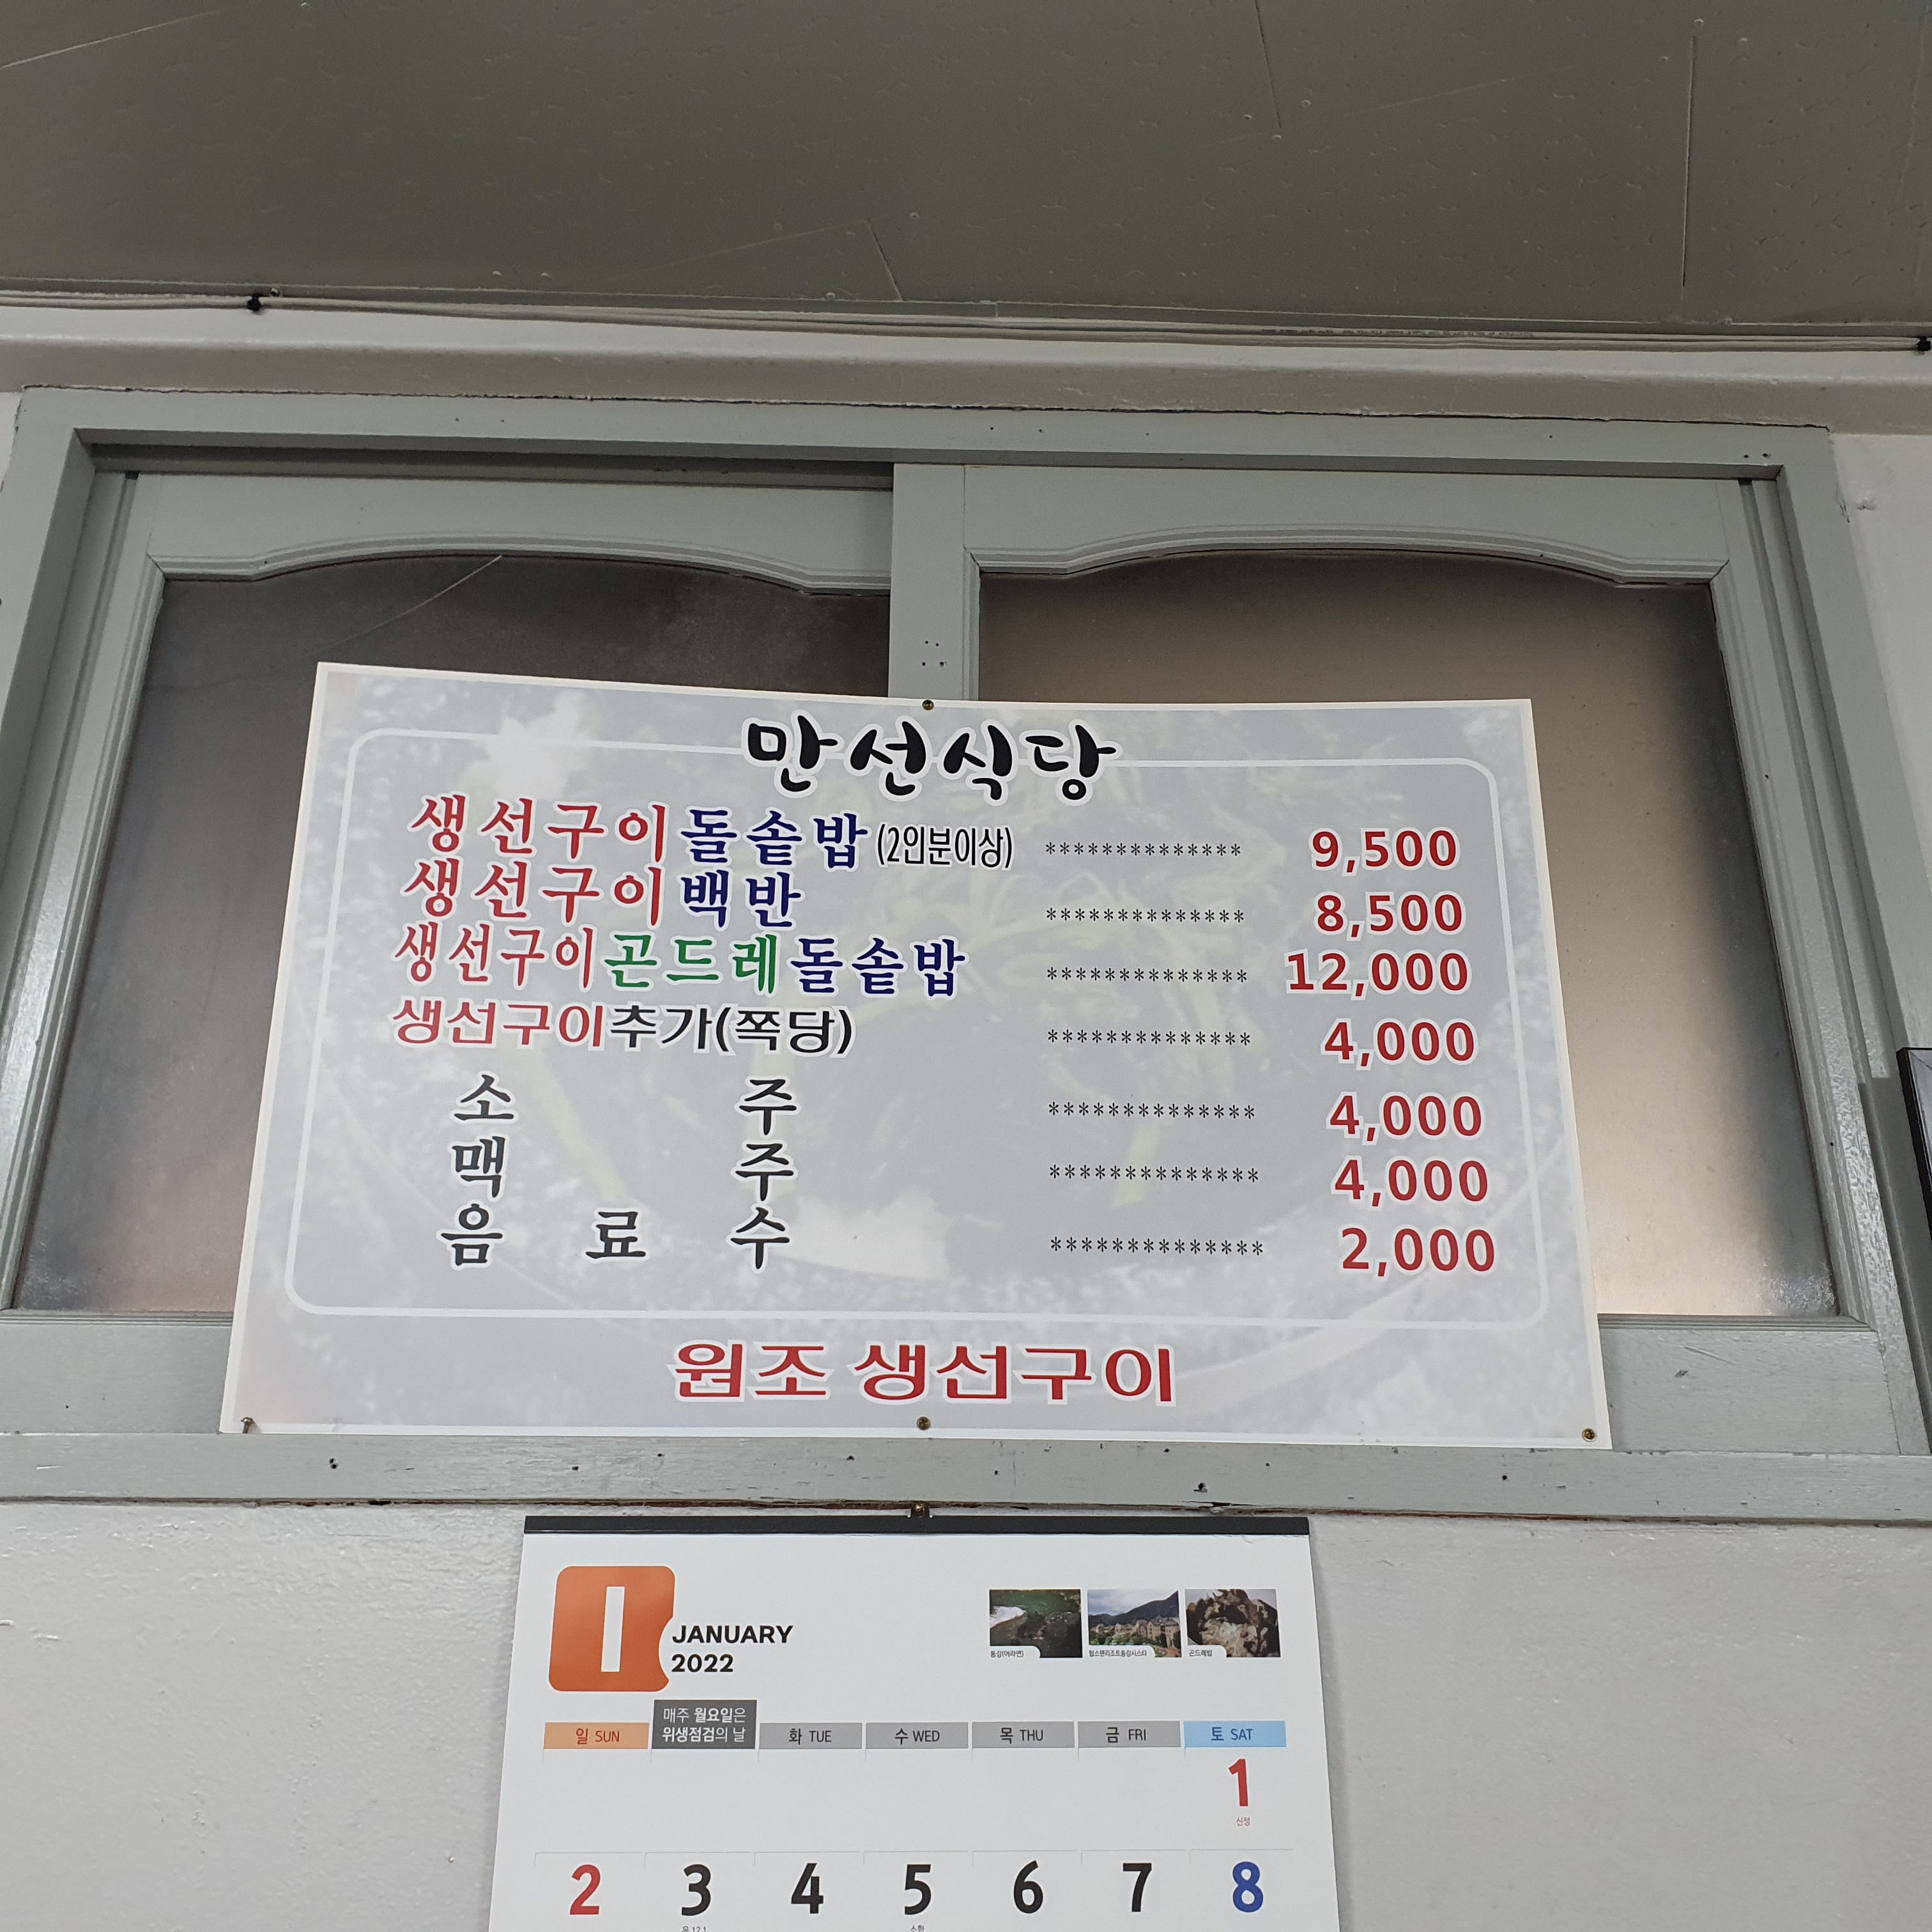 만선식당
생선구이돌솥밥(2인분이상) ************** 9,500
생선구이백반 ************** 8,500
생선구이곤드레돌솥밥 ************** 12,000
생선구이추가(쪽당) ************** 4,000
소 주 ************** 4,000
맥 주 ************** 4,000
음 료 수 ************** 2,000
원조 생선구이
1
JANUARY
2022
동강(어라연) 힐스텐리조트동강시스타 곤드레밥
매주 월요일은
위생점검의 날
일 SUN 화 TUE 수 WED 목 THU 금 FRI 토 SAT
1
신정
2 3 4 5 6 7 8
음 12.1 소한